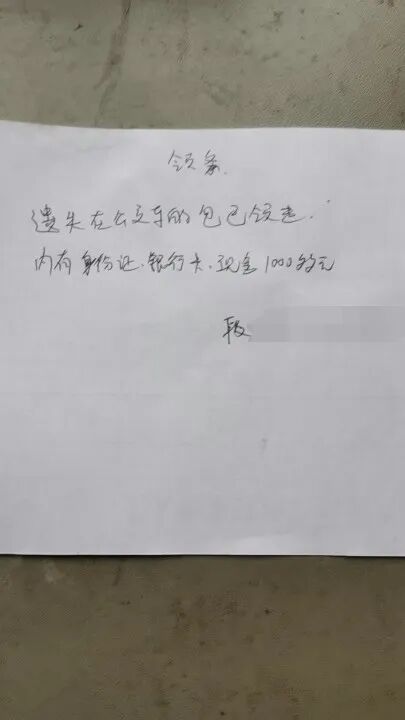 领条.
遗失在公交车的包已领走.
内有身份证、银行卡、现金1000多元
段